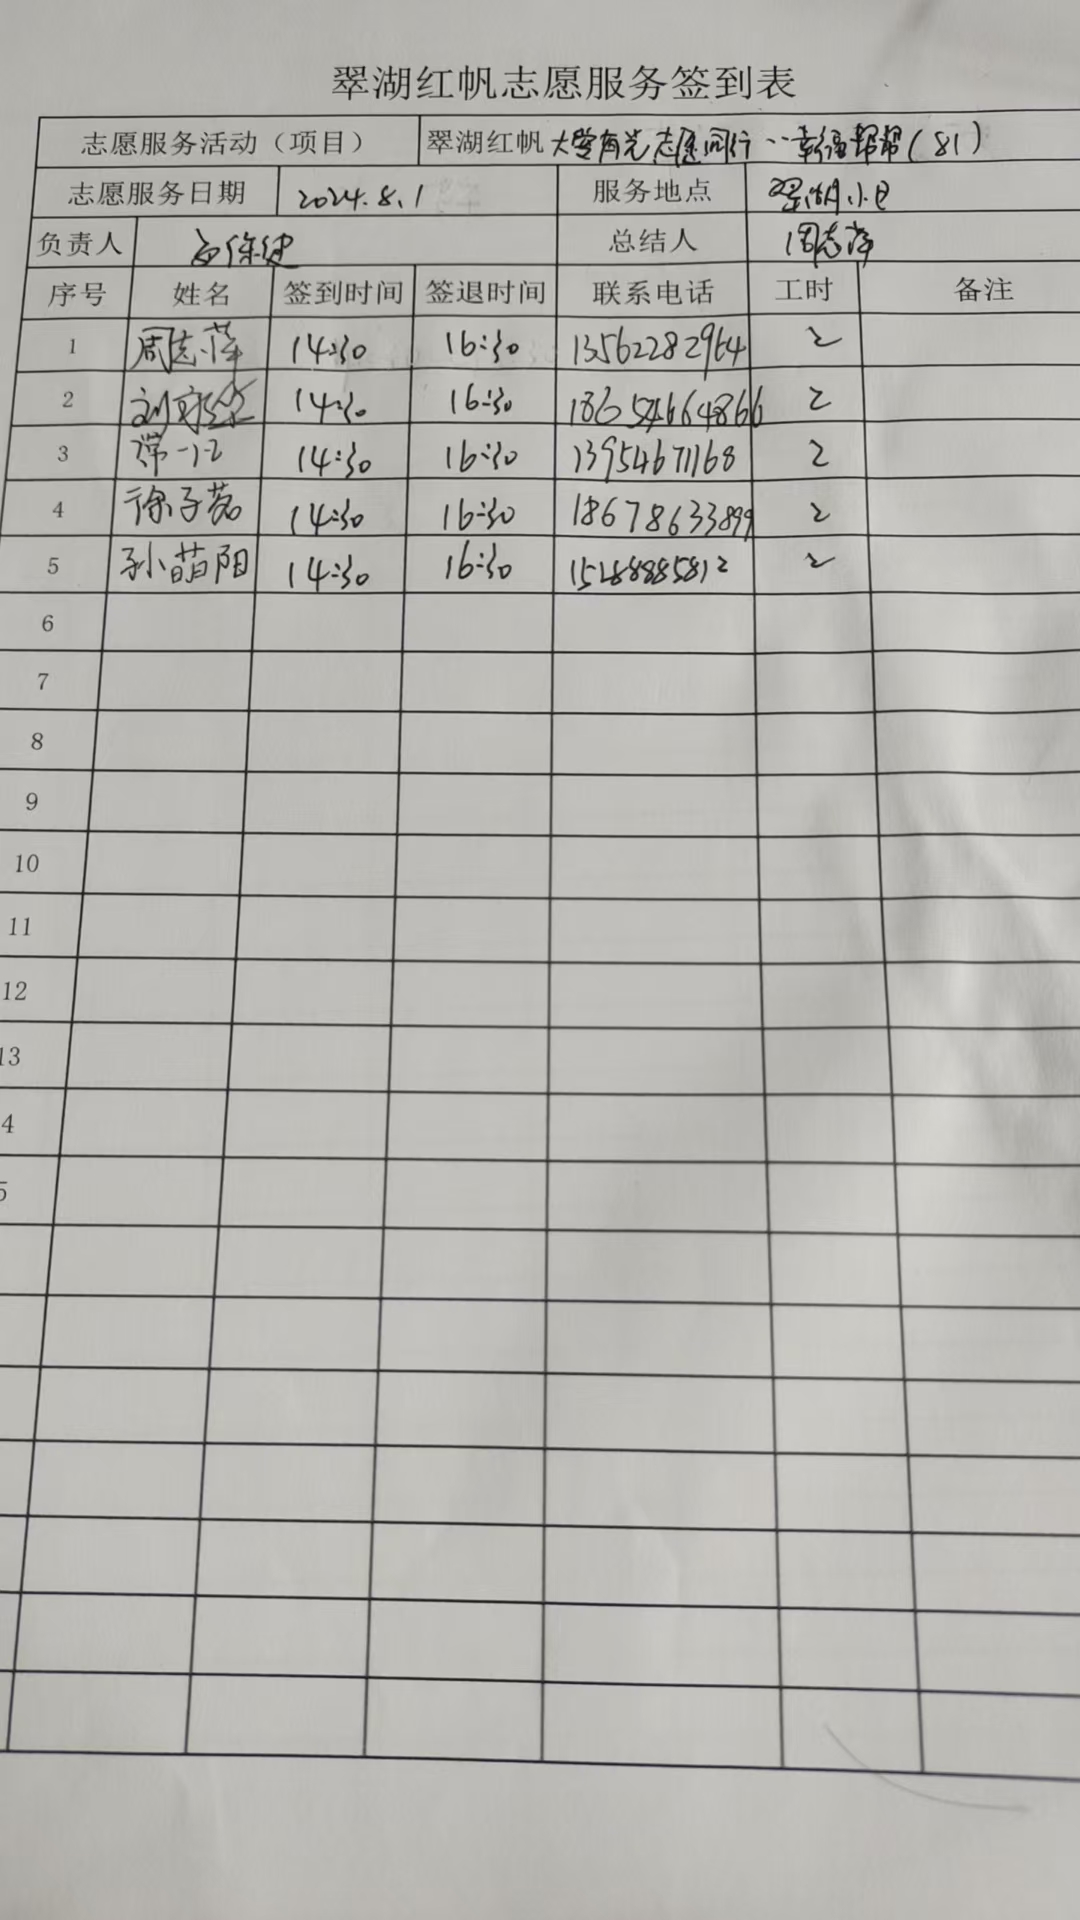 翠湖红帆志愿服务签到表
志愿服务活动（项目） 翠湖红帆 大爱有光 志愿同行 ··幸福帮帮（81）
志愿服务日期 2024.8.1 服务地点 翠湖小区
负责人 总结人 周志萍
序号 姓名 签到时间 签退时间 联系电话 工时 备注
1 周志萍 14:30 16:30 13562282964 2
2 14:30 16:30 18654664866 2
3 14:30 16:30 13954671168 2
4 徐子茗 14:30 16:30 18678633899 2
5 孙萌阳 14:30 16:30 15288885812 2
6
7
8
9
10
11
12
13
4
5